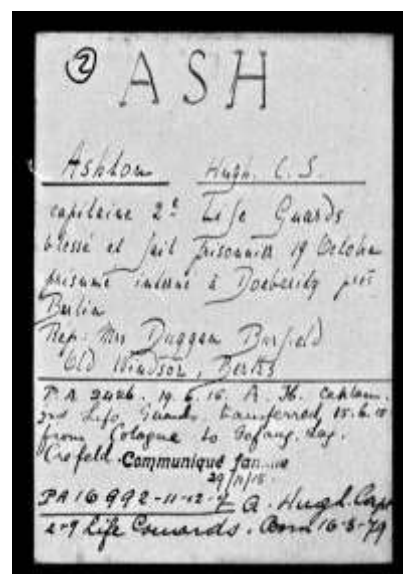 ② ASH
Ashton Hugh. C. S.
capitaine 2e Life Guards
blessé et fait prisonnier 19 Octobre
présumé interné à Doeberitz près
Berlin
Rep: Mrs Duggan Burfield
Old Windsor, Berks
P A 2426. 19. 6. 15. A. H. captain
2nd Life Guards transferred 15. 6. 15
from Cologne to Gefang. lag.
Crefeld. Communiqué fam
29/11/15.
PA 16992-11-12- A. Hugh. Capt
2-9 Life Gouards. Born 16-3-79